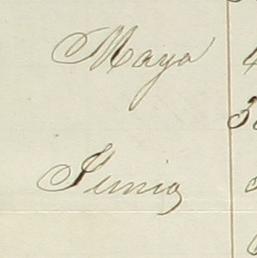 Mayo
Junio